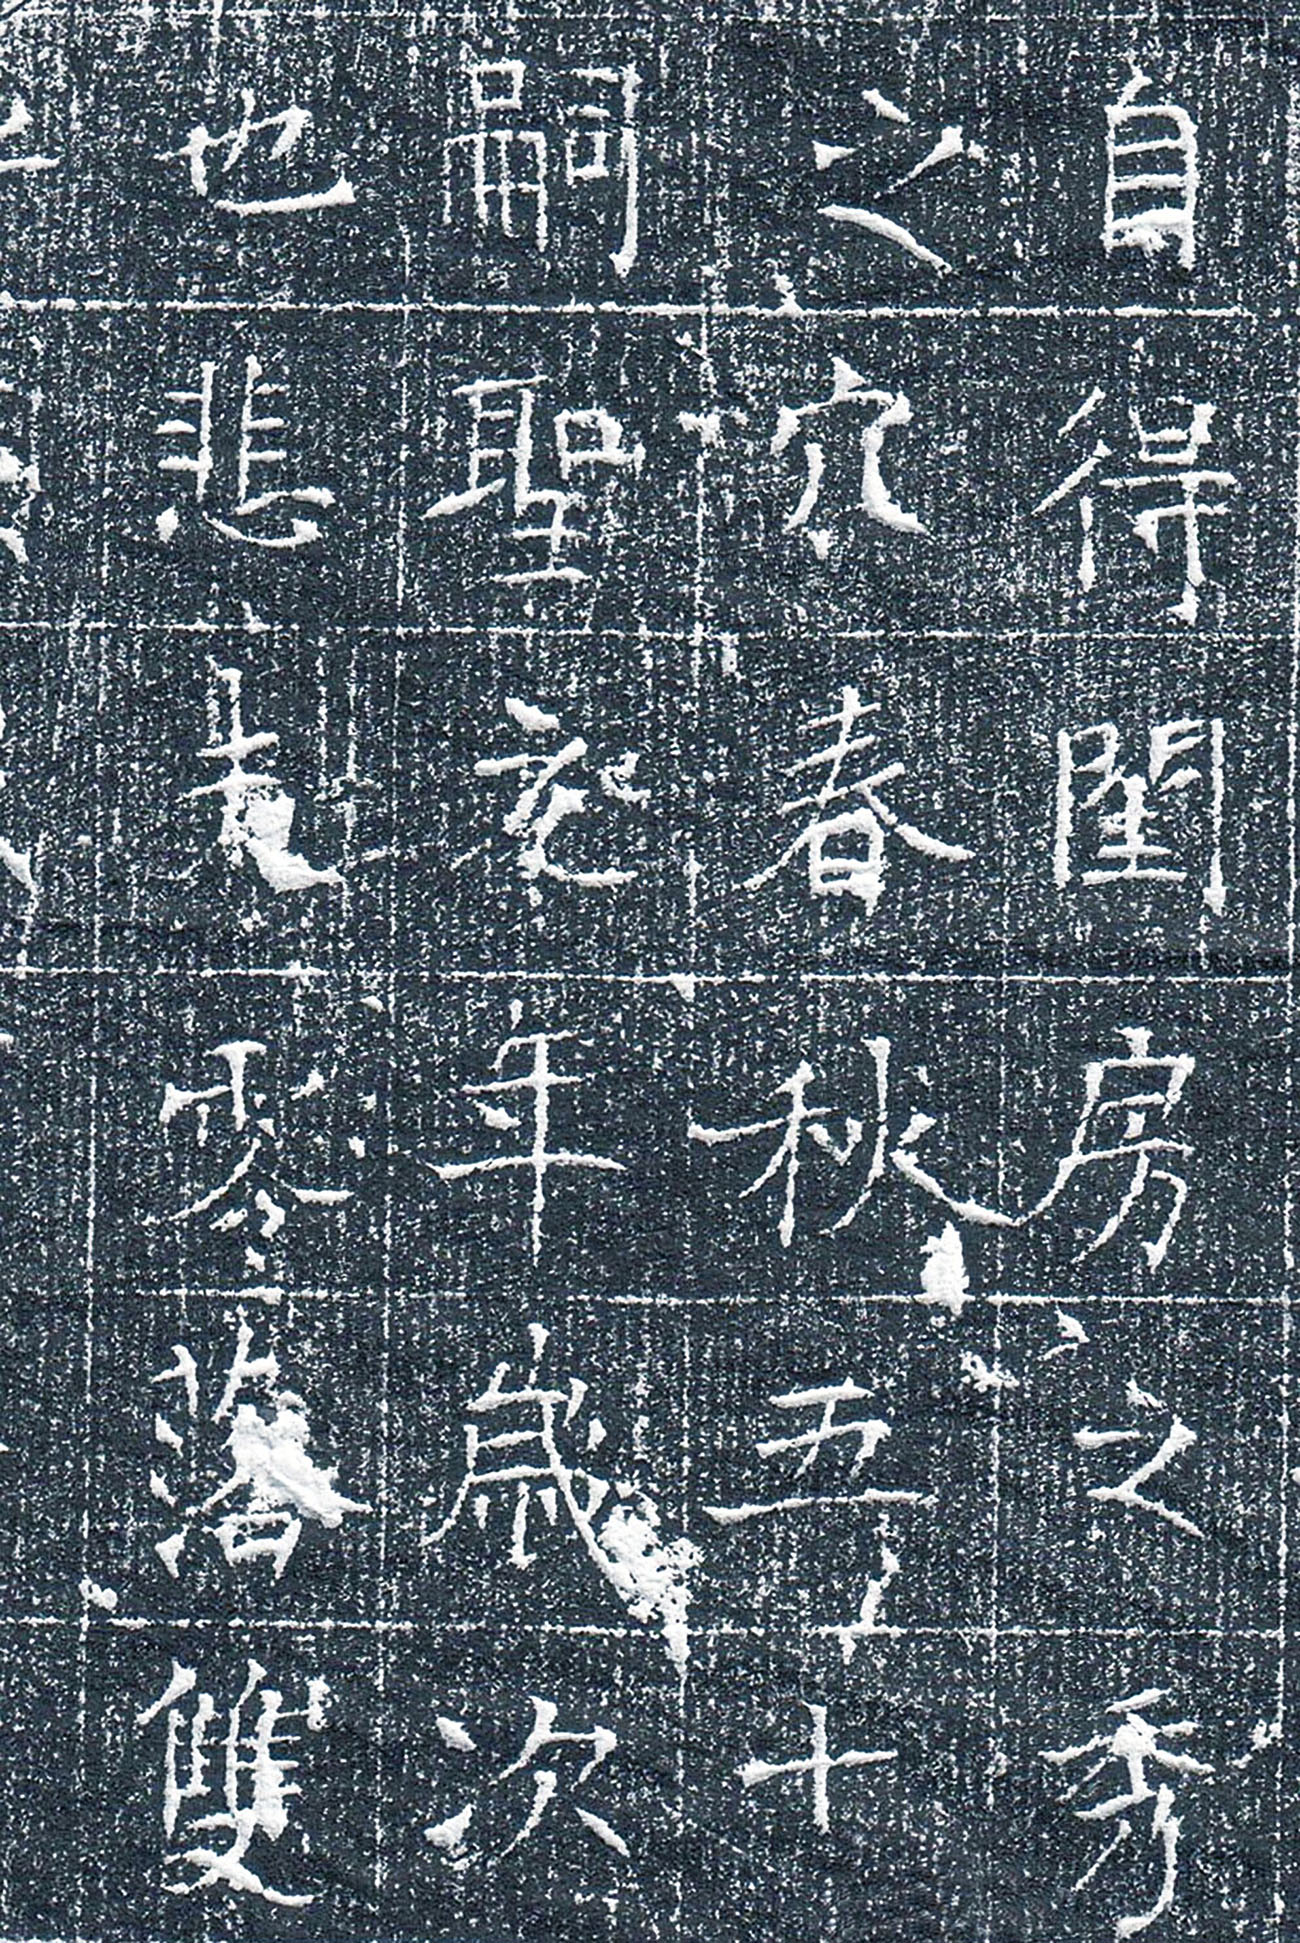 自得閨房之秀
之穴春秋五十
嗣聖元年歲次
也悲零落雙